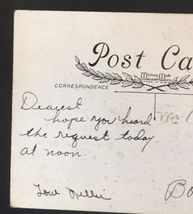 Post Ca
CORRESPONDENCE
Dearest
hope you heard
the request today
at noon.
Love Nellie